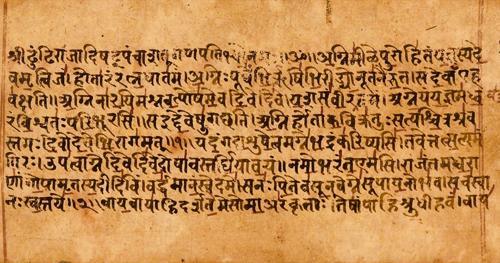 श्रीढुंढिराजादिषट्पंचाशत्गणपतिभ्योनमः॥ॐ॥अग्निमीळेपुरोहितंयज्ञस्यदे
वमृत्विजं।होतारंरत्नधातमं॥अग्निःपूर्वेभिर्ऋषिभिरीड्योनूतनैरुत।सदेवाँएह
वक्षति॥अग्निनारयिमश्नवत्पोषमेवदिवेदिवे।यशसंवीरवत्तमं॥अग्नेयंयज्ञमध्व
रंविश्वतःपरिभूरसि॥सइद्देवेषुगच्छति॥अग्निर्होताकविक्रतुःसत्यश्चित्रश्रव
स्तमः।देवोदेवेभिरागमत्॥१॥यदंगदाशुषेत्वमग्नेभद्रंकरिष्यसि।तवेत्तत्सत्यमं
गिरः॥उपत्वाग्नेदिवेदिवेदोषावस्तर्धियावयं॥नमोभरंतएमसि॥राजंतमध्वरा
णांगोपामृतस्यदीदिविं।वर्द्धमानंस्वेदमे॥सनःपितेवसूनवेग्नेसूपायनोभव।सचस्वा
नःस्वस्तये॥२॥वायवायाहिदर्शतेमेसोमाअरंकृताः।तेषांपाहिश्रुधीहवं।वाय